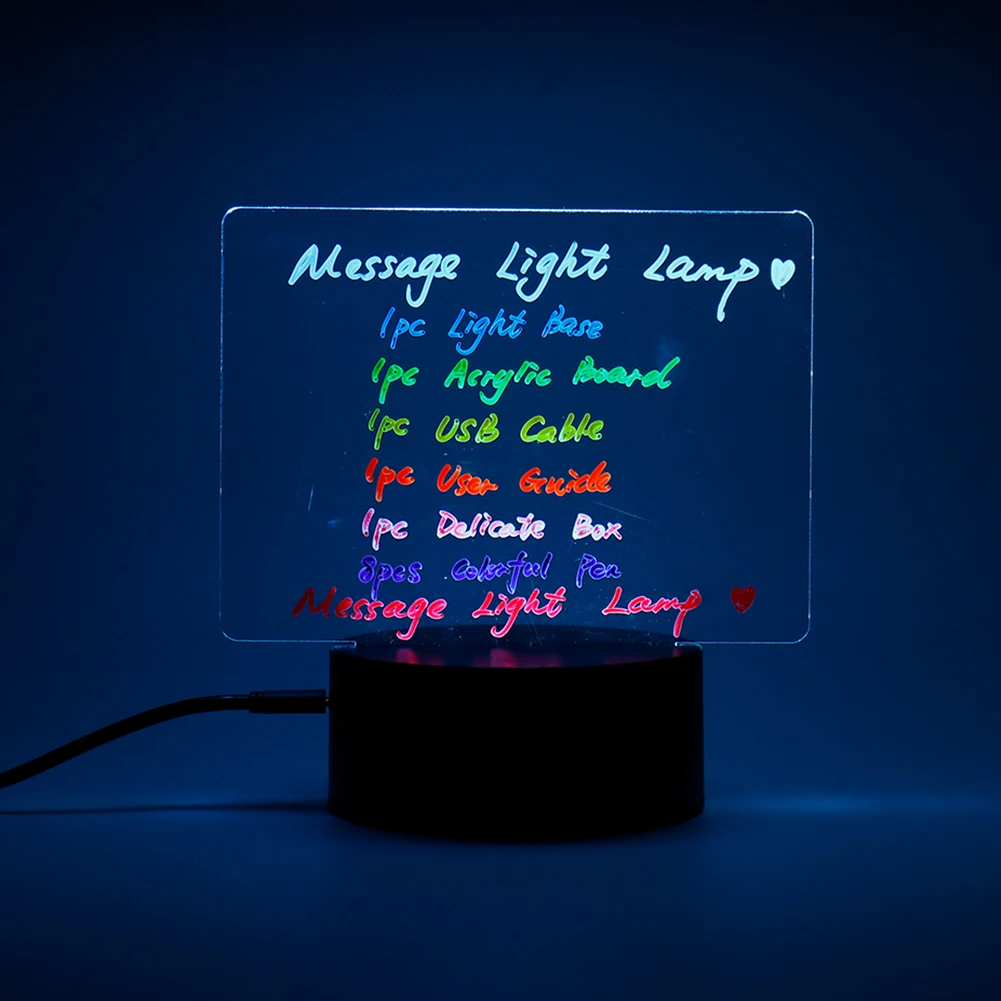 Message Light Lamp
1pc Light Base
1pc Acrylic Board
1pc USB Cable
1pc User Guide
1pc Delicate Box
8pcs Colorful Pen
Message Light Lamp